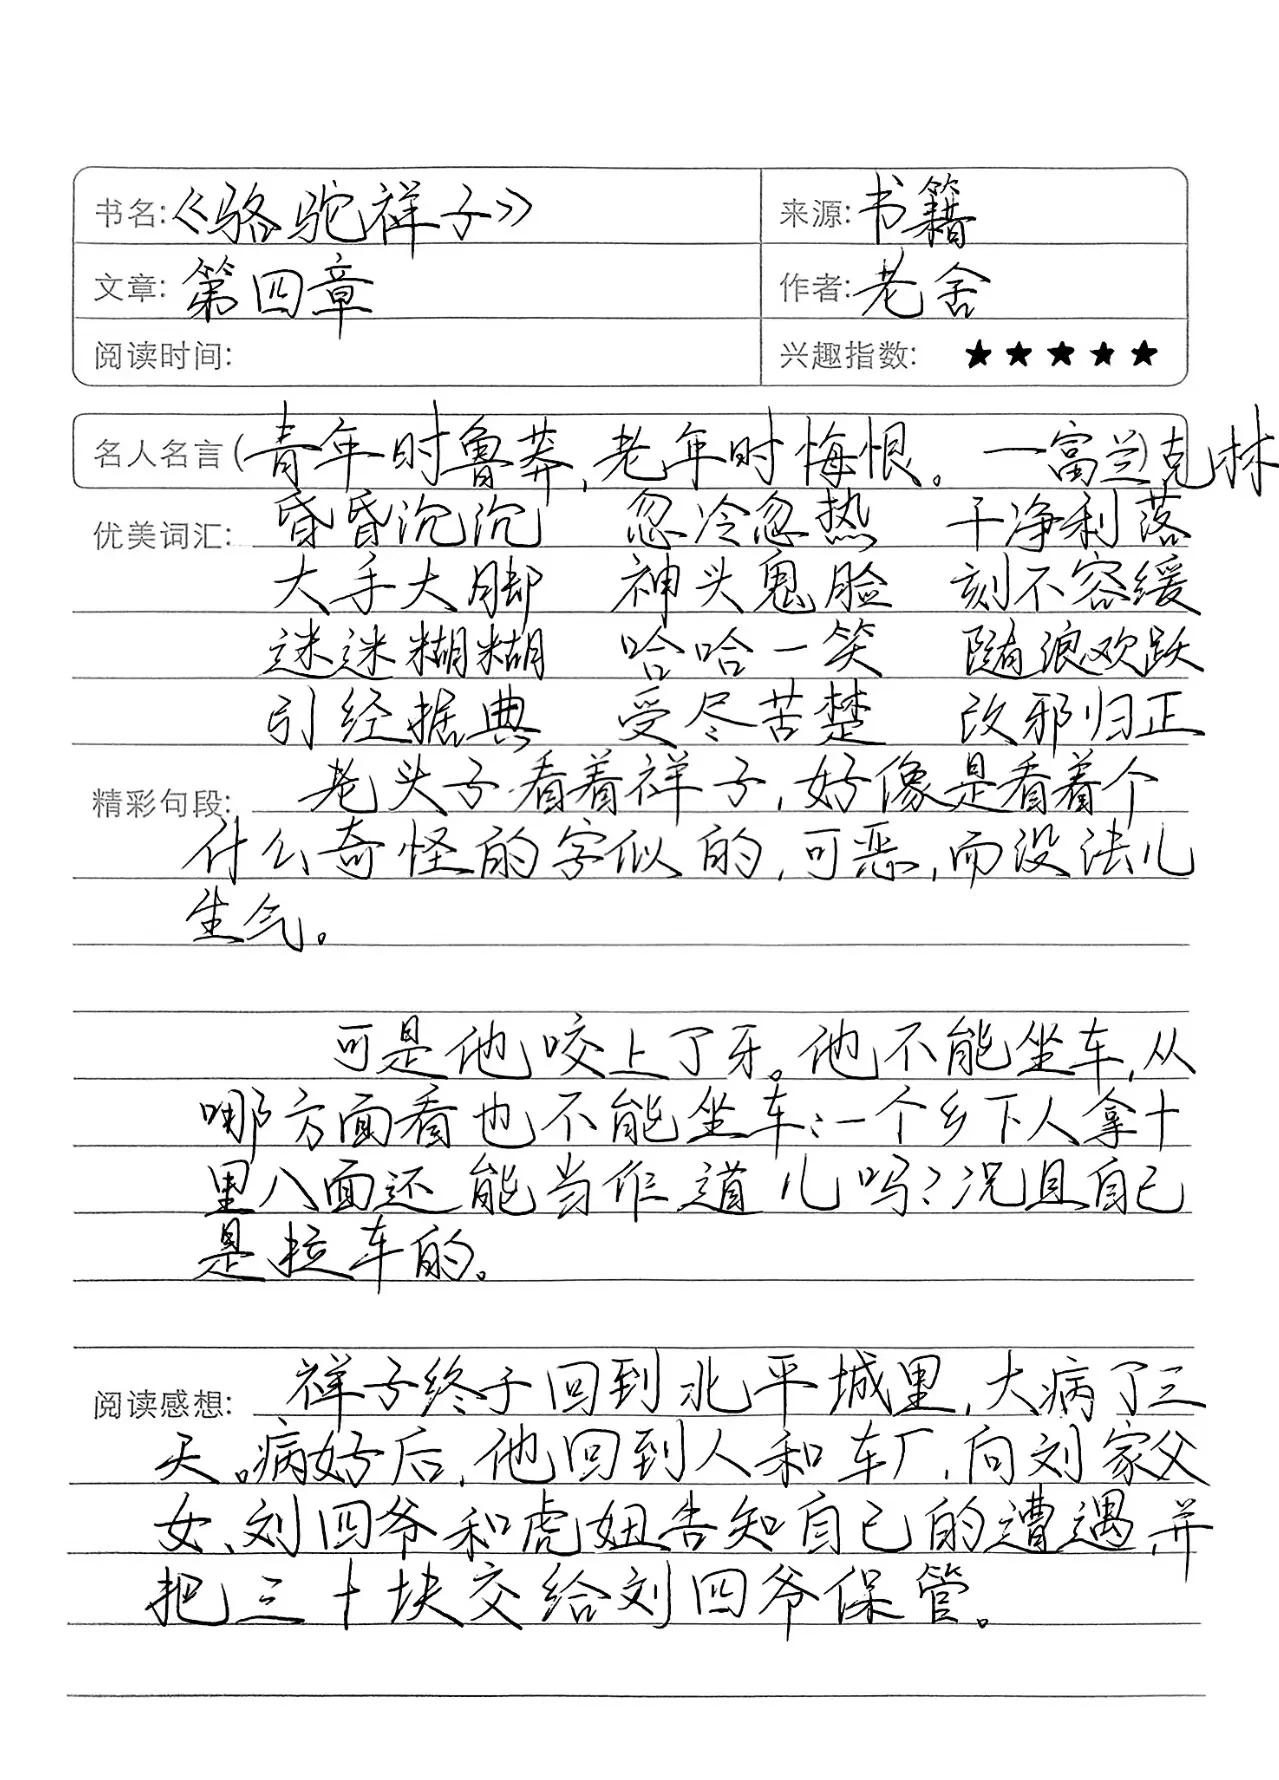 书名:《骆驼祥子》 来源:书籍
文章:第四章 作者:老舍
阅读时间: 兴趣指数: ★★★★★
名人名言(青年时鲁莽,老年时悔恨。一富兰克林
优美词汇: 昏昏沉沉 忽冷忽热 干净利落
大手大脚 神头鬼脸 刻不容缓
迷迷糊糊 哈哈一笑 随浪欢跃
引经据典 受尽苦楚 改邪归正
精彩句段: 老头子看着祥子,好像是看着个
什么奇怪的字似的,可恶,而没法儿
生气。
可是他咬上了牙。他不能坐车,从
哪方面看也不能坐车:一个乡下人拿十
里八面还能当作道儿吗?况且自己
是拉车的。
阅读感想: 祥子终于回到北平城里,大病了三
天。病好后,他回到人和车厂,向刘家父
女、刘四爷和虎妞告知自己的遭遇,并
把三十块交给刘四爷保管。